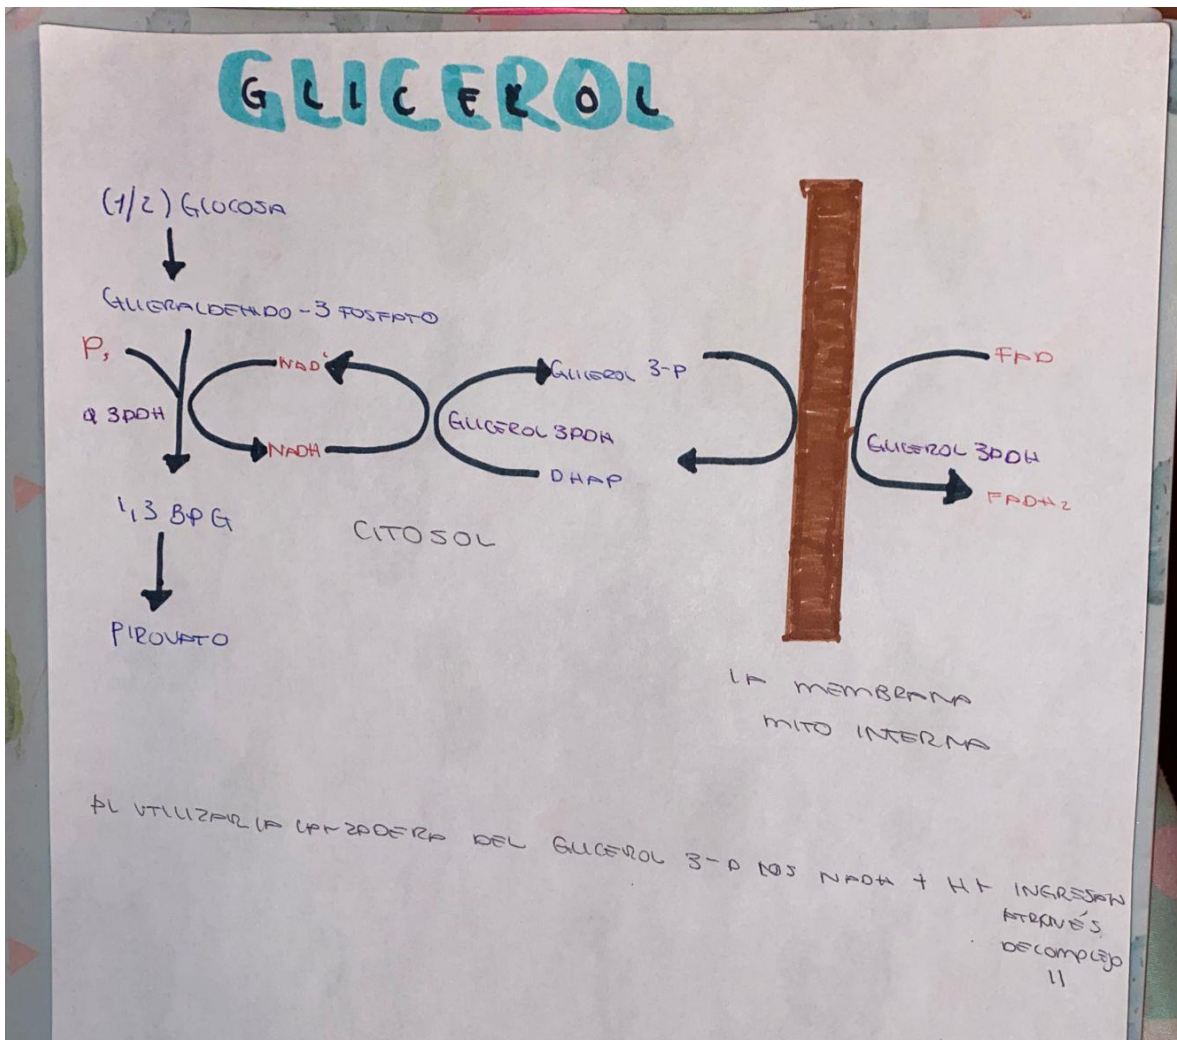 GLICEROL
(1/2) GLUCOSA
GLICERALDEHIDO-3 FOSFATO
NAD
NADH
1,3 BPG
PIROVATO
GLICEROL 3-P
GLICEROL 3PDH
DHAP
CITOSOL
FAD
GLICEROL 3PDH
FADH2
LA MEMBRANA
MITO INTERNA
AL UTILIZAR LA LANZADERA DEL GLICEROL 3-P LOS NADH + H+ INGRESAN
ATRAVÉS
DECOMPLEJO
II